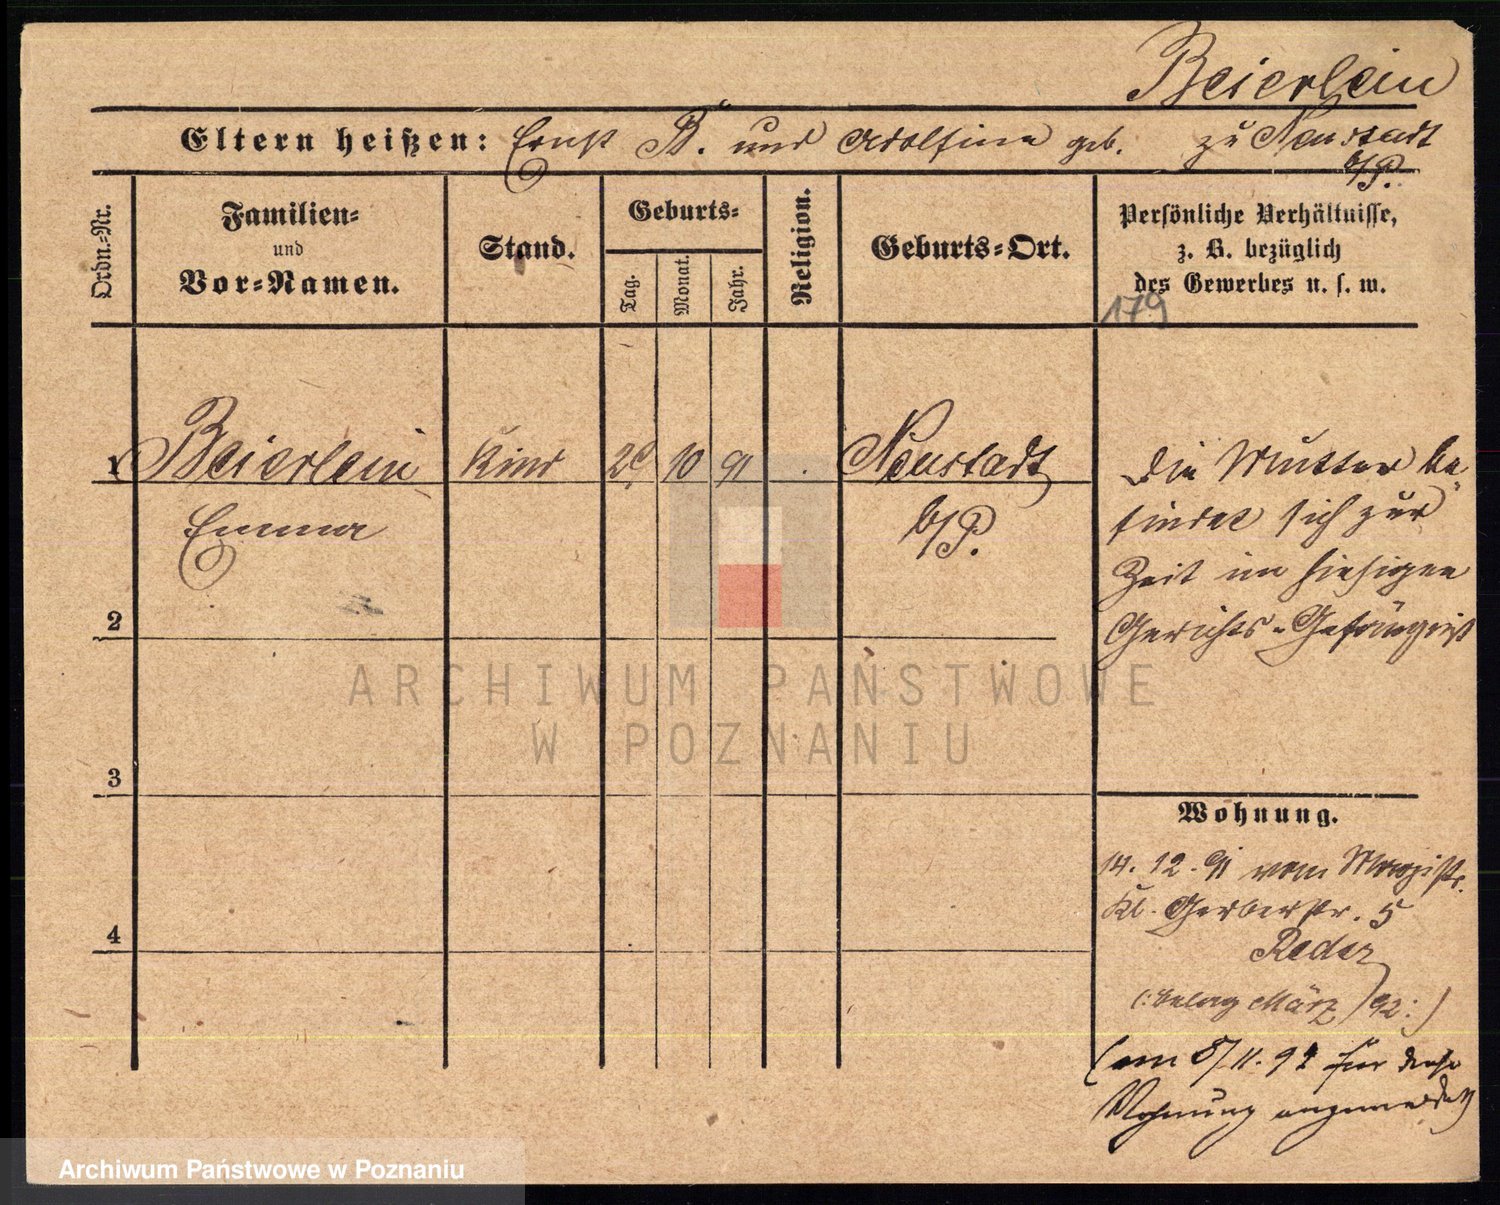 Beierlein
Eltern heißen: Ernst B. und Adolfine geb. zu Neustadt
b/P.
Ordn.-Nr.
Familien-
und
Vor-Namen.
Stand.
Geburts-
Tag.
Monat.
Jahr.
Religion.
Geburts-Ort.
Persönliche Verhältnisse,
z. B. bezüglich
des Gewerbes u. s. w.
179
1 Beierlein Kind 29 10 91 . Neustadt
Emma b/P.
Die Mutter be-
findet sich zur
Zeit im hiesigen
Gerichts-Gefängniß
2
3
4
Wohnung.
14. 12. 91 vom Magistr.
Kl. Gerberstr. 5
Reder
(: belag März 92 :)
(am 8/11. 92 für diese
Wohnung angemeldet)
ARCHIWUM PAŃSTWOWE
W POZNANIU
Archiwum Państwowe w Poznaniu